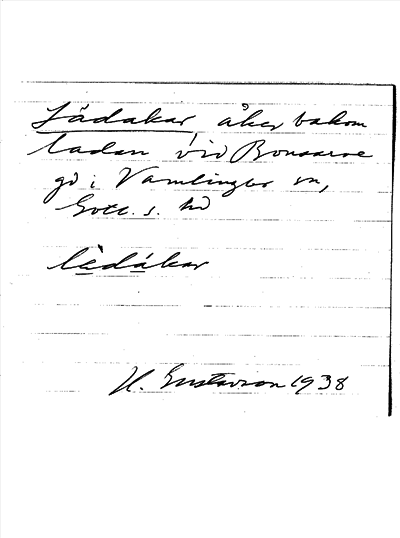 Lädakar, åker bakom
ladan vid Bonsarve
gd i Vamlingbo sn,
Gotl. s. hd
lèdákar
H. Gustavson 1938